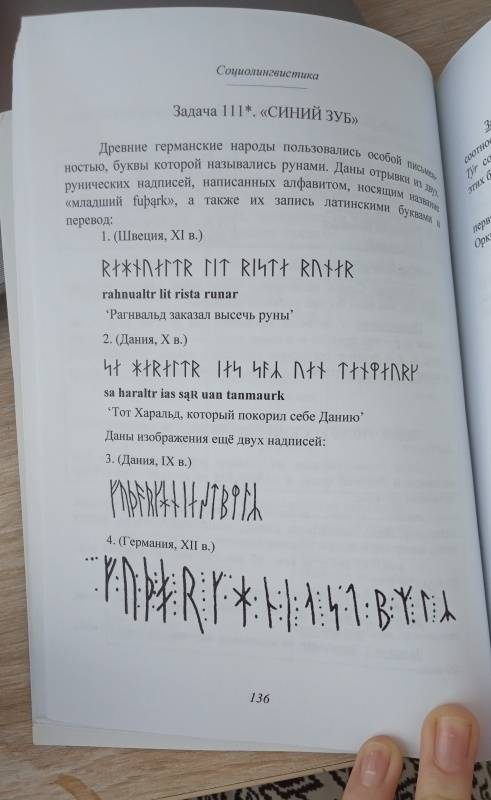 Социолингвистика
Задача 111*. «СИНИЙ ЗУБ»
Древние германские народы пользовались особой письмен-
ностью, буквы которой назывались рунами. Даны отрывки из двух
рунических надписей, написанных алфавитом, носящим название
«младший fuþąrk», а также их запись латинскими буквами и
перевод:
1. (Швеция, XI в.)
ᚱᛅᚼᚾᚢᛅᛚᛏᚱ ᛚᛁᛏ ᚱᛁᛋᛏᛅ ᚱᚢᚾᛅᚱ
rahnualtr lit rista runar
‘Рагнвальд заказал высечь руны’
2. (Дания, X в.)
ᛋᛅ ᚼᛅᚱᛅᛚᛏᚱ ᛁᛅᛋ ᛋᚬᛦ ᚢᛅᚾ ᛏᛅᚾᛘᛅᚢᚱᚴ
sa haraltr ias sąʀ uan tanmaurk
‘Тот Харальд, который покорил себе Данию’
Даны изображения ещё двух надписей:
3. (Дания, IX в.)
ᚠᚢᚦᚬᚱᚴᚼᚾᛁᛅᛋᛏᛒᛘᛚᛦ
4. (Германия, XII в.)
ᚠᚢᚦᚬᚱᚴᚼᚾᛁᛅᛋᛏᛒᛘᛚᛦ
136